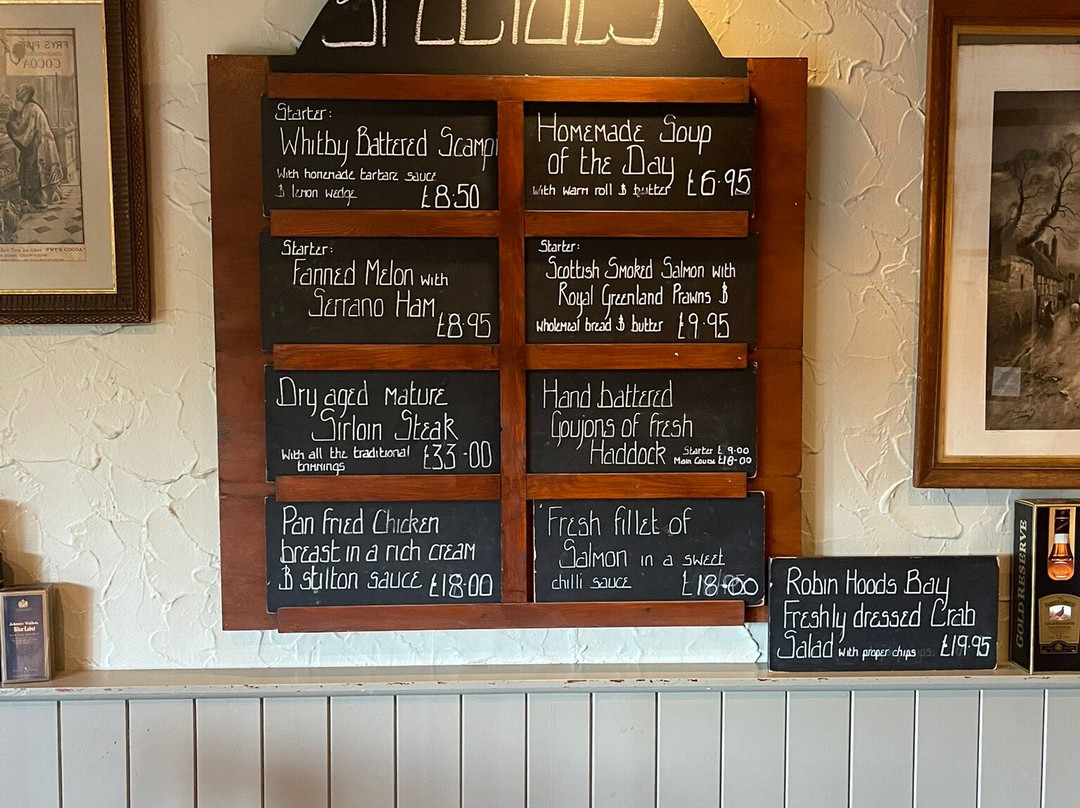 SPECIALS
Starter:
Whitby Battered Scampi
With homemade tartare sauce
& lemon wedge £8.50
Homemade Soup
of the Day
With warm roll & butter £6.95
Starter:
Fanned Melon with
Serrano Ham
£8.95
Starter:
Scottish Smoked Salmon with
Royal Greenland Prawns &
wholemeal bread & butter £9.95
Dry aged mature
Sirloin Steak
With all the traditional
trimnings £33.00
Hand battered
Goujons of fresh
Haddock
Starter £ 9.00
Main Course £18.00
Pan fried Chicken
breast in a rich cream
& stilton sauce £18.00
Fresh fillet of
Salmon in a sweet
chilli sauce £18.00
Robin Hoods Bay
Freshly dressed Crab
Salad With proper chips £19.95
FRY'S PURE
COCOA
"FRY'S COCOA"
Johnnie Walker
Blue Label
GOLD RESERVE